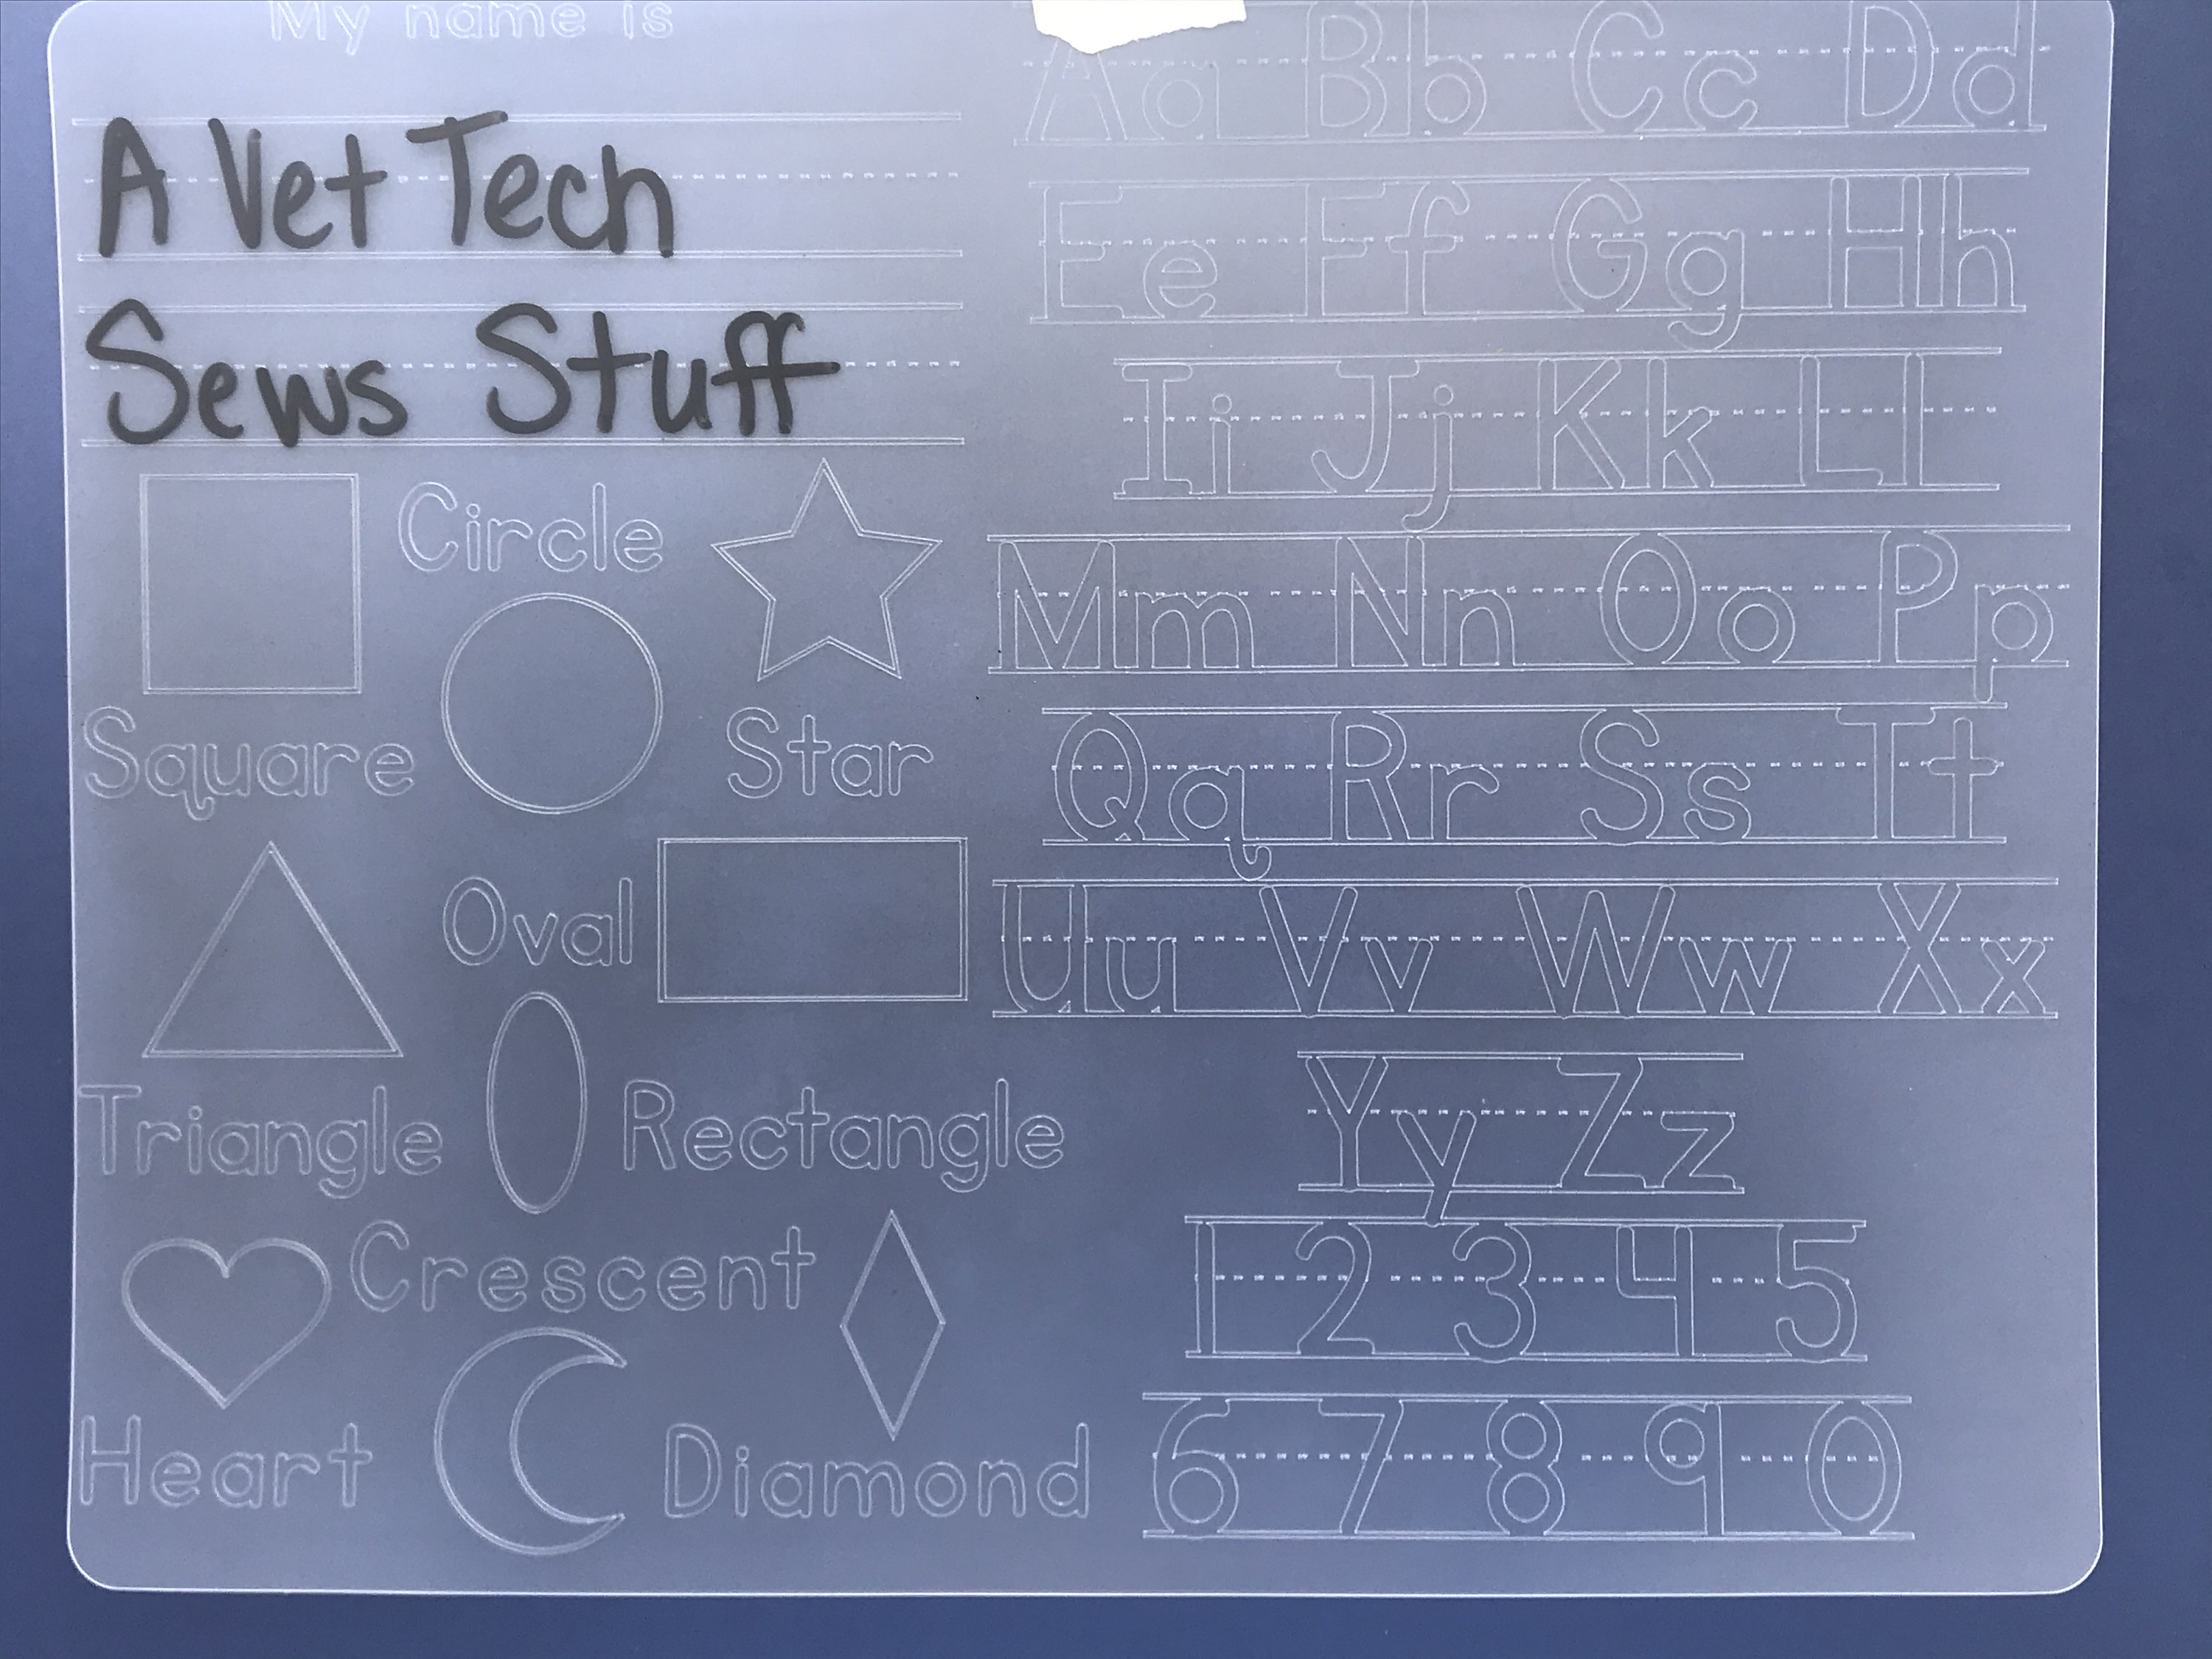 My name is
A Vet Tech
Sews Stuff
Circle
Square
Star
Oval
Triangle
Rectangle
Crescent
Heart
Diamond
Aa Bb Cc Dd
Ee Ff Gg Hh
Ii Jj Kk Ll
Mm Nn Oo Pp
Qq Rr Ss Tt
Uu Vv Ww Xx
Yy Zz
1 2 3 4 5
6 7 8 9 0